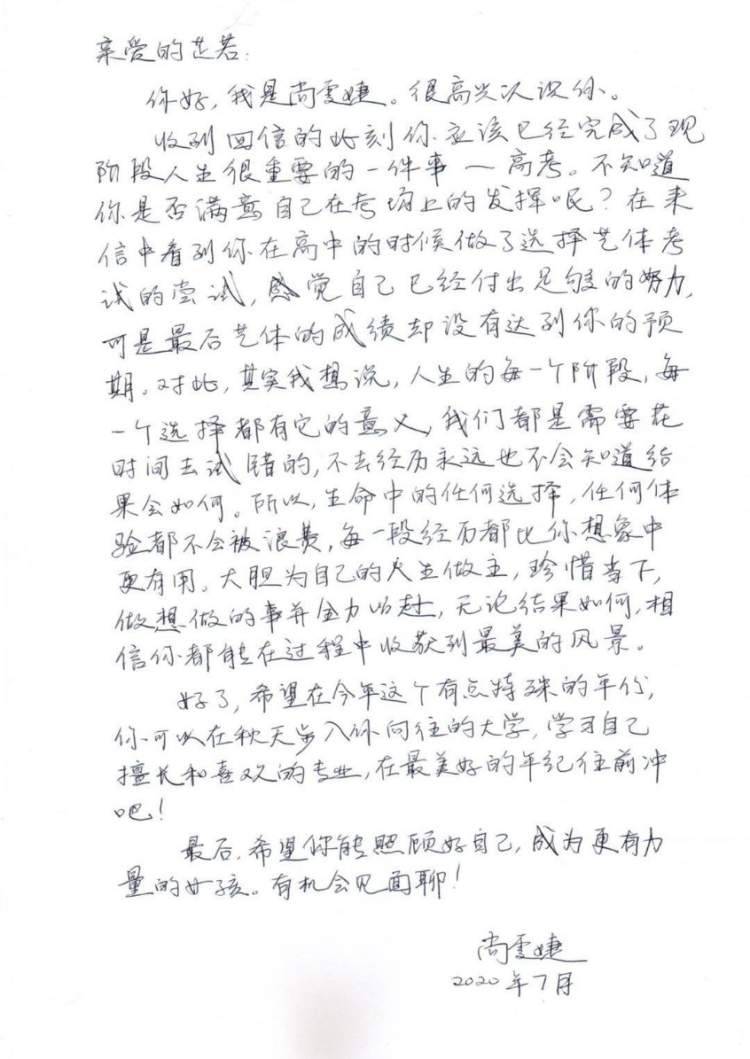 亲爱的芷若:
你好,我是尚雯婕。很高兴认识你。
收到回信的此刻你应该已经完成了现
阶段人生很重要的一件事—高考。不知道
你是否满意自己在考场上的发挥呢?在来
信中看到你在高中的时候做了选择艺体考
试的尝试,感觉自己已经付出足够的努力,
可是最后艺体的成绩却没有达到你的预
期。对此,其实我想说,人生的每一个阶段,每
一个选择都有它的意义,我们都是需要花
时间去试错的,不去经历永远也不会知道结
果会如何。所以,生命中的任何选择,任何体
验都不会被浪费,每一段经历都比你想象中
更有用。大胆为自己的人生做主,珍惜当下,
做想做的事并全力以赴,无论结果如何,相
信你都能在过程中收获到最美的风景。
好了,希望在今年这个有点特殊的年份,
你可以在秋天步入你向往的大学,学习自己
擅长和喜欢的专业,在最美好的年纪往前冲
吧!
最后,希望你能照顾好自己,成为更有力
量的女孩。有机会见面聊!
尚雯婕
2020年7月